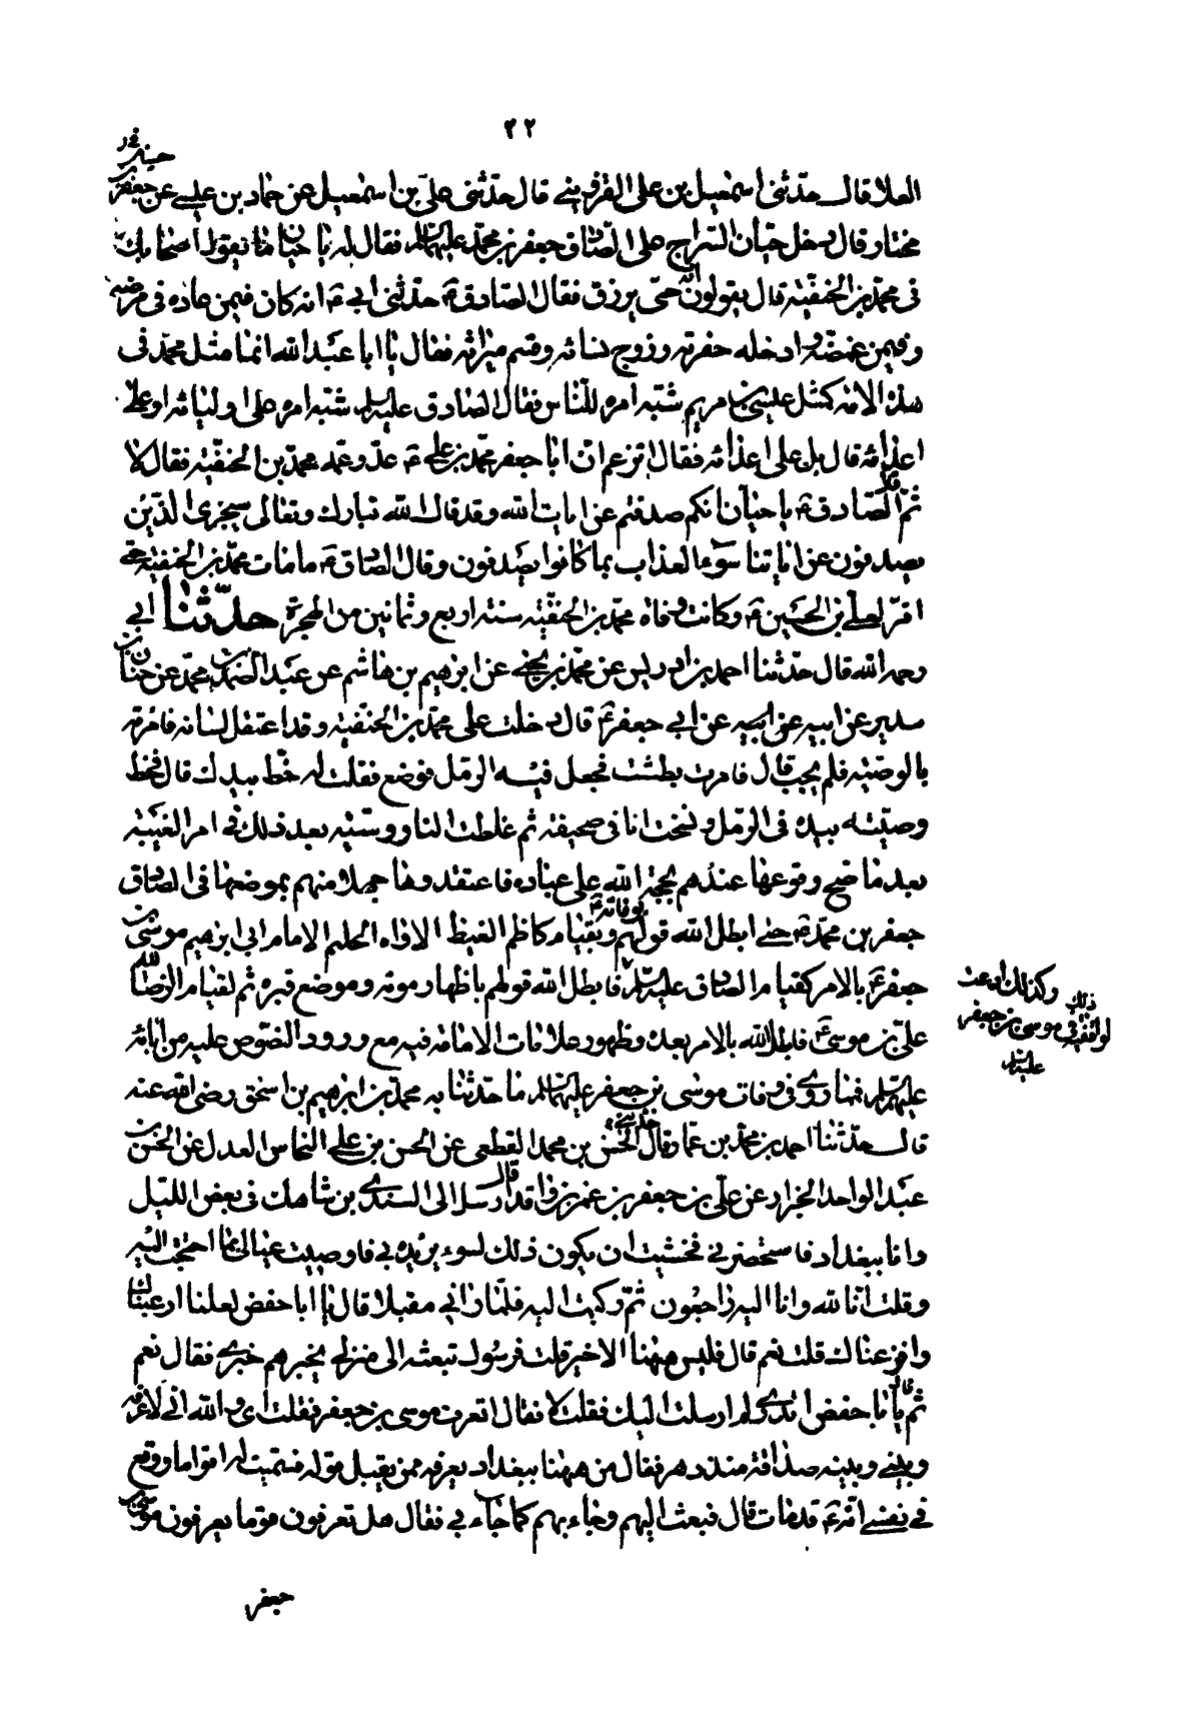 ٤٢
العلا قال حدثنى اسمعيل بن على القزوينى قال حدثنى على بن اسمعيل عن حماد بن عيسى عن جعفر بن
مختار قال دخل حيان السراج على الصادق جعفر بن محمد عليهما السلم فقال له يا حيان ما يقول اصحابك
فى محمد بن الحنفيه قال يقولون انه حى يرزق فقال الصادق ع حدثنى ابى ع انه كان فيمن عاده فى مرضه
وفيمن غمضه وادخله حفرته وزوج نسائه وقسم ميراثه فقال يا ابا عبد الله انما مثل محمد فى
هذه الامه كمثل عيسى بن مريم شبه امره للناس فقال الصادق عليه السلم شبه امره على اوليائه او على
اعدائه قال بل على اعدائه فقال اتزعم ان ابا جعفر محمد بن على ع عدو عمه محمد بن الحنفيه فقال لا
ثم قال الصادق ع يا حيان انكم صدفتم عن ايات الله وقد قال الله تبارك وتعالى سيجزى الذين
يصدفون عن اياتنا سوء العذاب بما كانوا يصدفون وقال الصادق ع ما مات محمد بن الحنفيه حتى
اقر لعلى بن الحسين ع وكانت وفاه محمد بن الحنفيه سنه اربع وثمانين من الهجره حدثنا ابى
رحمه الله قال حدثنا احمد بن ادريس عن محمد بن يحيى عن ابرهيم بن هاشم عن عبد الصمد بن محمد عن حنان بن
سدير عن ابيه عن ابيه عن ابى جعفر ع قال دخلت على محمد بن الحنفيه وقد اعتقل لسانه فامرته
بالوصيه فلم يجب قال فامرت بطشت فجعل فيه الرمل فوضع فقلت له خط بيدك قال فخط
وصيته بيده فى الرمل ونسخت انا فى صحيفه ثم غلطت الناووسيه بعد ذلك فى امر الغيبه
بعد ما صح وقوعها عندهم بحجه الله على عباده فاعتقدوها جهلا منهم بموضعها فى الصادق
جعفر بن محمد ع حتى ابطل الله قولهم بوفاته ع وبقيام كاظم الغيظ الاواه الحليم الامام ابى ابرهيم موسى بن
جعفر ع بالامر كقيام الصادق عليه السلم فابطل الله قولهم باظهار موته وموضع قبره ثم لقيام الرضا
وكذلك ادعت
ذلك
لواقفيه فى موسى بن جعفر
عليه السلم
على بن موسى ع فابطل الله بالامر بعده وظهور علامات الامامه فيه مع ورود النصوص عليه من ابائه
عليهم السلم فمما روى فى وفات موسى بن جعفر عليهما السلم ما حدثنا به محمد بن ابرهيم بن اسحق رضى الله عنه
قال حدثنا احمد بن محمد بن عمار قال حدثنى الحسن بن محمد القطعى عن الحسن بن على النخاس العدل عن الحسن بن
عبد الواحد الخزار عن على بن جعفر بن عمر بن واقد قال ارسل الى السندى بن شاهك فى بعض الليل
وانا ببغداد فاستحضرنى فخشيت ان يكون ذلك لسوء يريده بى فاوصيت عيالى بما احتجت اليه
وقلت انا لله وانا اليه راجعون ثم ركبت اليه فلما رانى مقبلا قال يا ابا حفص لعلنا ارعبناك
وافزعناك قلت نعم قال فليس ههنا الا خير قلت فرسول تبعثه الى منزلى يخبرهم خبرى فقال نعم
ثم قال يا ابا حفص اتدرى لم ارسلت اليك فقلت لا فقال اتعرف موسى بن جعفر فقلت اى والله انى لاعرفه
وبينى وبينه صداقه منذ دهر فقال من ههنا ببغداد يعرفه ممن يقبل قوله فسميت له اقواما ووقع
فى نفسى انه ع قد مات قال فبعث اليهم وجاء بهم كما جاء بى فقال هل تعرفون قوما يعرفون موسى بن
جعفر